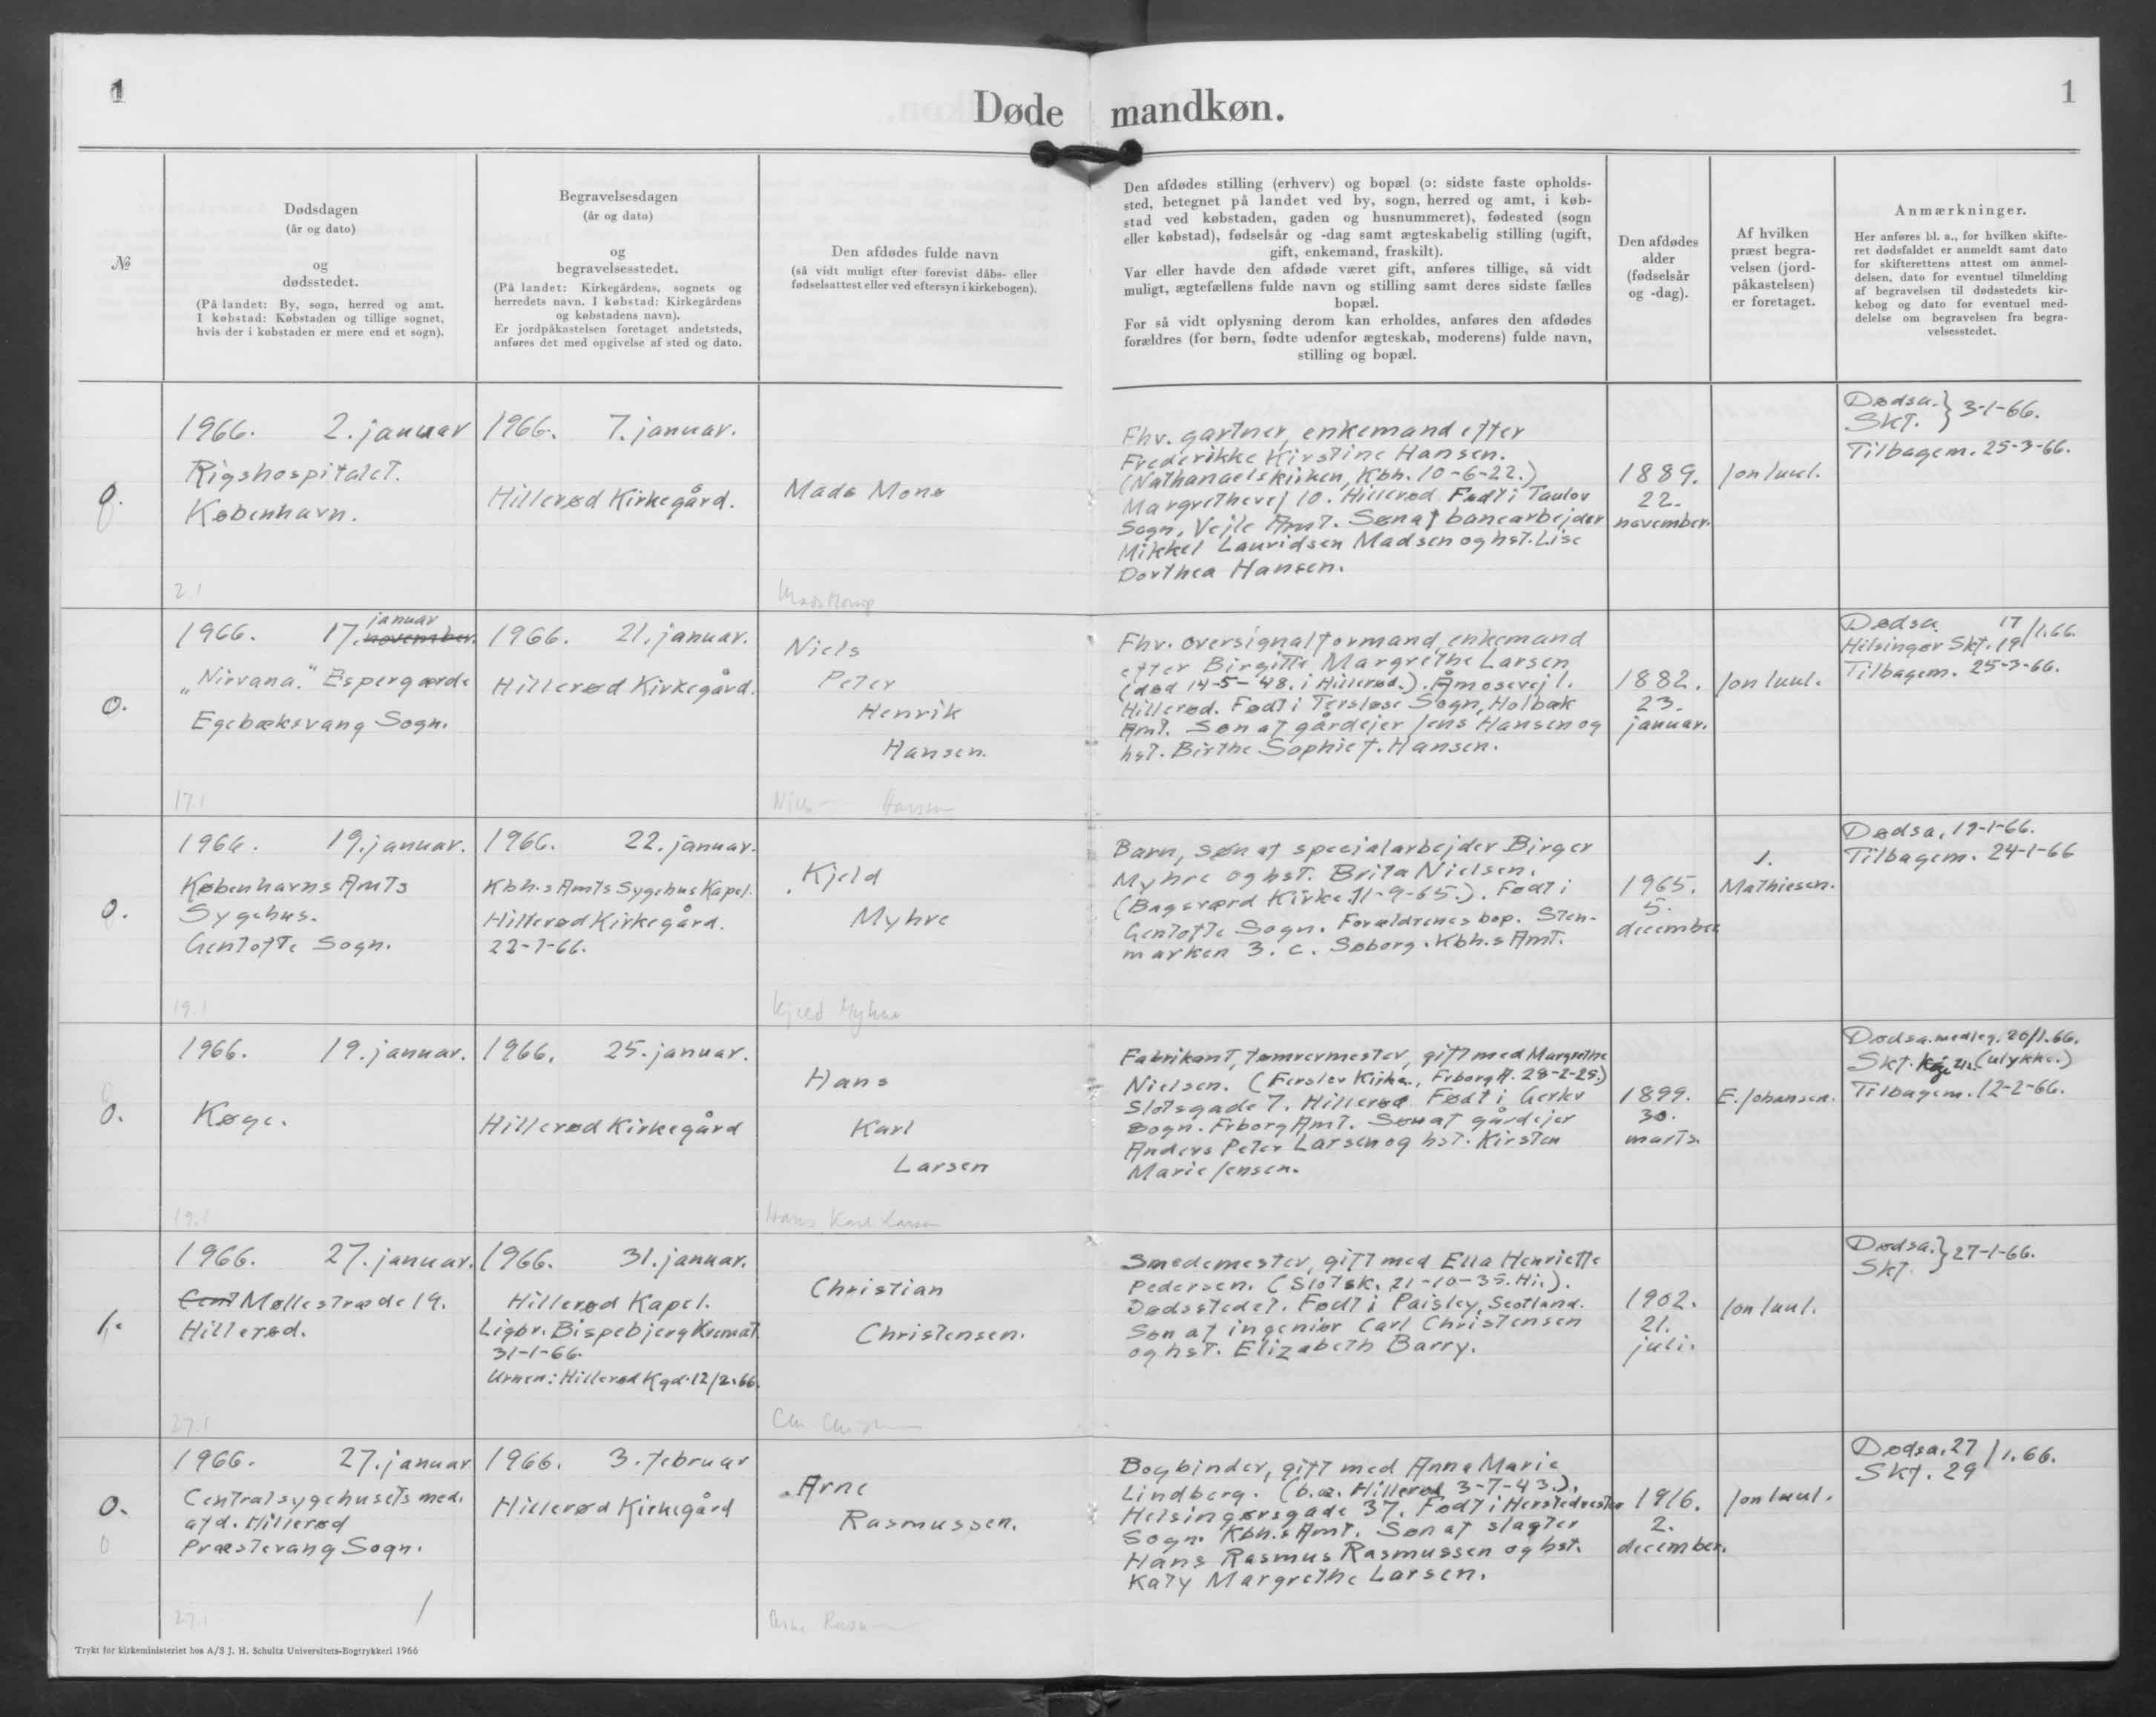 1
1
Døde mandkøn.
№
Dødsdagen
(år og dato)
og
dødsstedet.
(På landet: By, sogn, herred og amt.
I købstad: Købstaden og tillige sognet,
hvis der i købstaden er mere end et sogn).
Begravelsesdagen
(år og dato)
og
begravelsesstedet.
(På landet: Kirkegårdens, sognets og
herredets navn. I købstad: Kirkegårdens
og købstadens navn).
Er jordpåkastelsen foretaget andetsteds,
anføres det med opgivelse af sted og dato.
Den afdødes fulde navn
(så vidt muligt efter forevist dåbs- eller
fødselsattest eller ved eftersyn i kirkebogen).
Den afdødes stilling (erhverv) og bopæl (ɔ: sidste faste opholds-
sted, betegnet på landet ved by, sogn, herred og amt, i køb-
stad ved købstaden, gaden og husnummeret), fødested (sogn
eller købstad), fødselsår og -dag samt ægteskabelig stilling (ugift,
gift, enkemand, fraskilt).
Var eller havde den afdøde været gift, anføres tillige, så vidt
muligt, ægtefællens fulde navn og stilling samt deres sidste fælles
bopæl.
For så vidt oplysning derom kan erholdes, anføres den afdødes
forældres (for børn, fødte udenfor ægteskab, moderens) fulde navn,
stilling og bopæl.
Den afdødes
alder
(fødselsår
og -dag).
Af hvilken
præst begra-
velsen (jord-
påkastelsen)
er foretaget.
Anmærkninger.
Her anføres bl. a., for hvilken skifte-
ret dødsfaldet er anmeldt samt dato
for skifterettens attest om anmel-
delsen, dato for eventuel tilmelding
af begravelsen til dødsstedets kir-
kebog og dato for eventuel med-
delelse om begravelsen fra begra-
velsesstedet.
0.
1966. 2. januar
Rigshospitalet.
København.
2.1
1966. 7. januar.
Hillerød Kirkegård.
Mads Mons
Fhv. gartner, enkemand efter
Frederikke Kirstine Hansen.
(Nathanaelskirken, Kbh. 10-6-22.)
Margrethevej 10. Hillerød. Født i Taulov
Sogn, Vejle Amt. Søn af banearbejder
Mikkel Lauridsen Madsen og hst. Lise
Dorthea Hansen.
1889.
22.
november.
Jon Juul.
Dødsa. } 3-1-66.
Skt.
Tilbagem. 25-3-66.
0.
1966. 17. november. januar
"Nirvana." Espergærde
Egebæksvang Sogn.
17.1
1966. 21. januar.
Hillerød Kirkegård.
Niels
Peter
Henrik
Hansen.
Niels Hansen
Fhv. oversignalformand, enkemand
efter Birgitte Margrethe Larsen
(død 14-5-48. i Hillerød.). Åmosevej 1.
Hillerød. Født i Tersløse Sogn, Holbæk
Amt. Søn af gårdejer Jens Hansen og
hst. Birthe Sophie f. Hansen.
1882.
23.
januar.
Jon Juul.
Dødsa. 17
Helsingør Skt. 19/1.66.
Tilbagem. 25-3-66.
0.
1966. 19. januar.
Københavns Amts
Sygehus.
Gentofte Sogn.
19.1
1966. 22. januar.
Kbh.s Amts Sygehus Kapel.
Hillerød Kirkegård.
22-1-66.
Kjeld
Myhre
Kjeld Myhre
Barn, søn af specialarbejder Birger
Myhre og hst. Brita Nielsen.
(Bagsværd Kirke. 11-9-65.). Født i
Gentofte Sogn. Forældrenes bop. Sten-
marken 3. C. Søborg. Kbh.s Amt.
1965.
5.
december
J.
Mathiesen.
Dødsa. 19-1-66.
Tilbagem. 24-1-66
0.
1966. 19. januar.
Køge.
19.1
1966. 25. januar.
Hillerød Kirkegård
Hans
Karl
Larsen
Hans Karl Larsen
Fabrikant, tømrermester, gift med Margrethe
Nielsen. (Ferslev Kirke., Frborg A. 28-2-25.)
Slotsgade 7. Hillerød. Født i Gerlev
Sogn. Frborg Amt. Søn af gårdejer
Anders Peter Larsen og hst. Kirsten
Marie Jensen.
1899.
30.
marts.
E. Johansen.
Dødsa. medleg. 20/1.66.
Skt. Køge (ulykke.)
Tilbagem. 12-2-66.
1.
1966. 27. januar.
Cent Møllestræde 19.
Hillerød.
27.1
1966. 31. januar.
Hillerød Kapel.
Ligbr. Bispebjerg Kremat.
31-1-66.
Urnen: Hillerød Kgd. 12/2.66.
Christian
Christensen.
Smedemester, gift med Ella Henriette
Pedersen. (Slotsk. 21-10-35. Hi.).
Dødsstedet. Født i Paisley, Scotland.
Søn af ingeniør Carl Christensen
og hst. Elizabeth Barry.
1902.
21.
juli.
Jon Juul.
Dødsa. } 27-1-66.
Skt.
0.
1966. 27. januar
Centralsygehusets med.
afd. Hillerød
Præstevang Sogn.
27.1
1966. 3. februar
Hillerød Kirkegård
Arne
Rasmussen.
Bogbinder, gift med Anna Marie
Lindberg. (b.v. Hillerød 3-7-43.).
Helsingørsgade 37. Født i Herstedvester
Sogn. Kbh.s Amt. Søn af slagter
Hans Rasmus Rasmussen og hst.
Katy Margrethe Larsen.
1916.
2.
december.
Jon Juul.
Dødsa. 27
Skt. 29 /1.66.
Trykt for kirkeministeriet hos A/S J. H. Schultz Universitets-Bogtrykkeri 1966